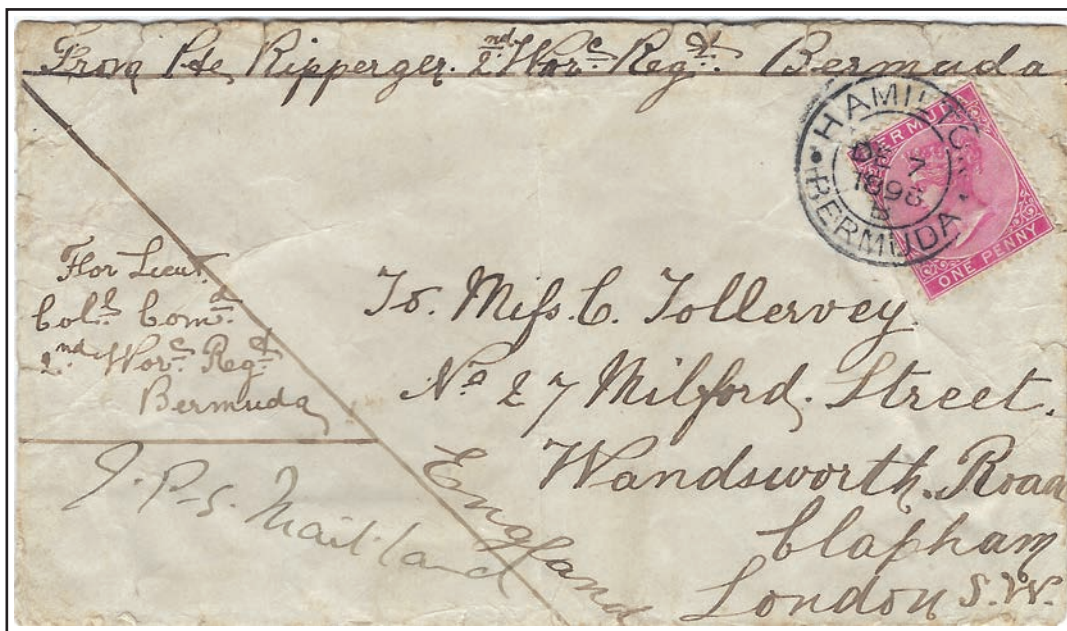 From Pte Ripperger. 2nd Worc. Regt. Bermuda
BERMUDA
ONE PENNY
HAMILTON
DE 7
1898
5
BERMUDA
Flor Lieut.
Coll. Comd.
2nd Worc. Regt.
Bermuda
J. P-S. Maitland
To. Miss. C. Tollervey.
No 27 Milford. Street.
Wandsworth. Road
Clapham
London S.W.
England